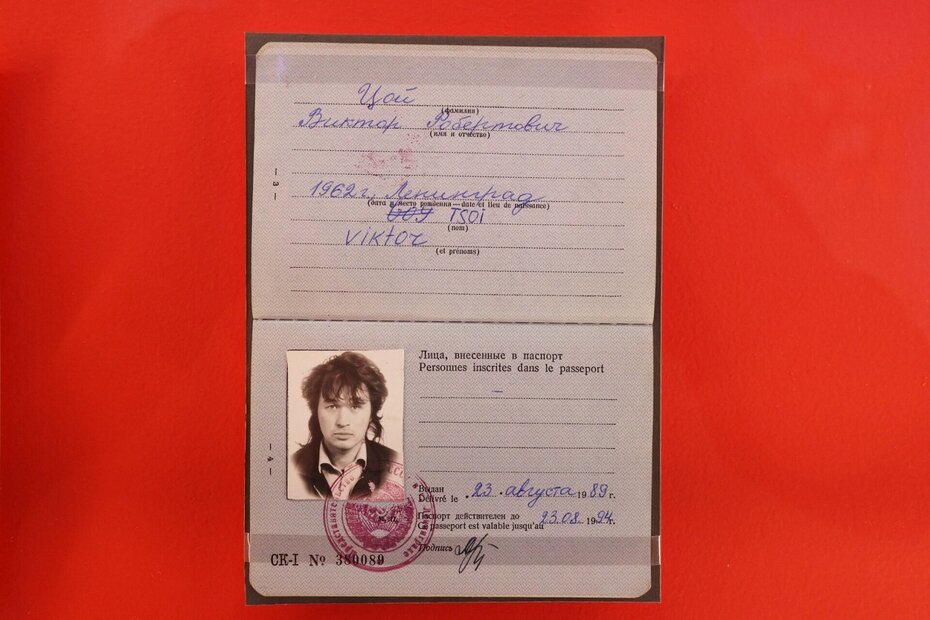 Цой
(фамилия)
Виктор Робертович
(имя и отчество)
— 3 —
1962г, Ленинград
(дата и место рождения—date et lieu de naissance)
TSOI
(nom)
Viktor
(et prénoms)
Лица, внесенные в паспорт
Personnes inscrites dans le passeport
—
— 4 —
Выдан
Délivré le 23 августа 1989 г.
Паспорт действителен до
Ce passeport est valable jusqu'au 23.08. 1994г.
Подпись
СК-I № 380089